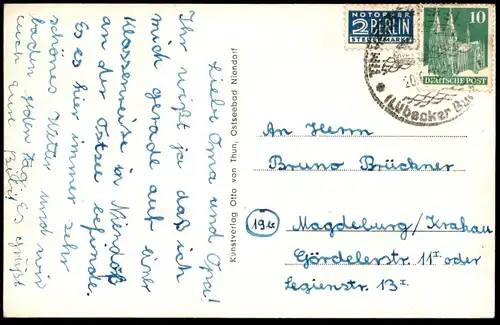 Liebe Oma und Opa!
Ihr wißt ja daß ich
mich gerade auf einer
Klassenreise in Niendorf
an der Ostsee befinde.
Es es hier immer sehr
schönes Wetter und wir
baden jeden Tag. Es grüßt
euch eure
Kunstverlag Otto von Thun, Ostseebad Niendorf
NOTOPFER
2 BERLIN
STEUERMARKE
10
DEUTSCHE POST
(Lübecker
An Herrn
Bruno Brückner
(19b)
Magdeburg/Krakau
Gördelerstr. 11 I oder
Legienstr. 13 I.